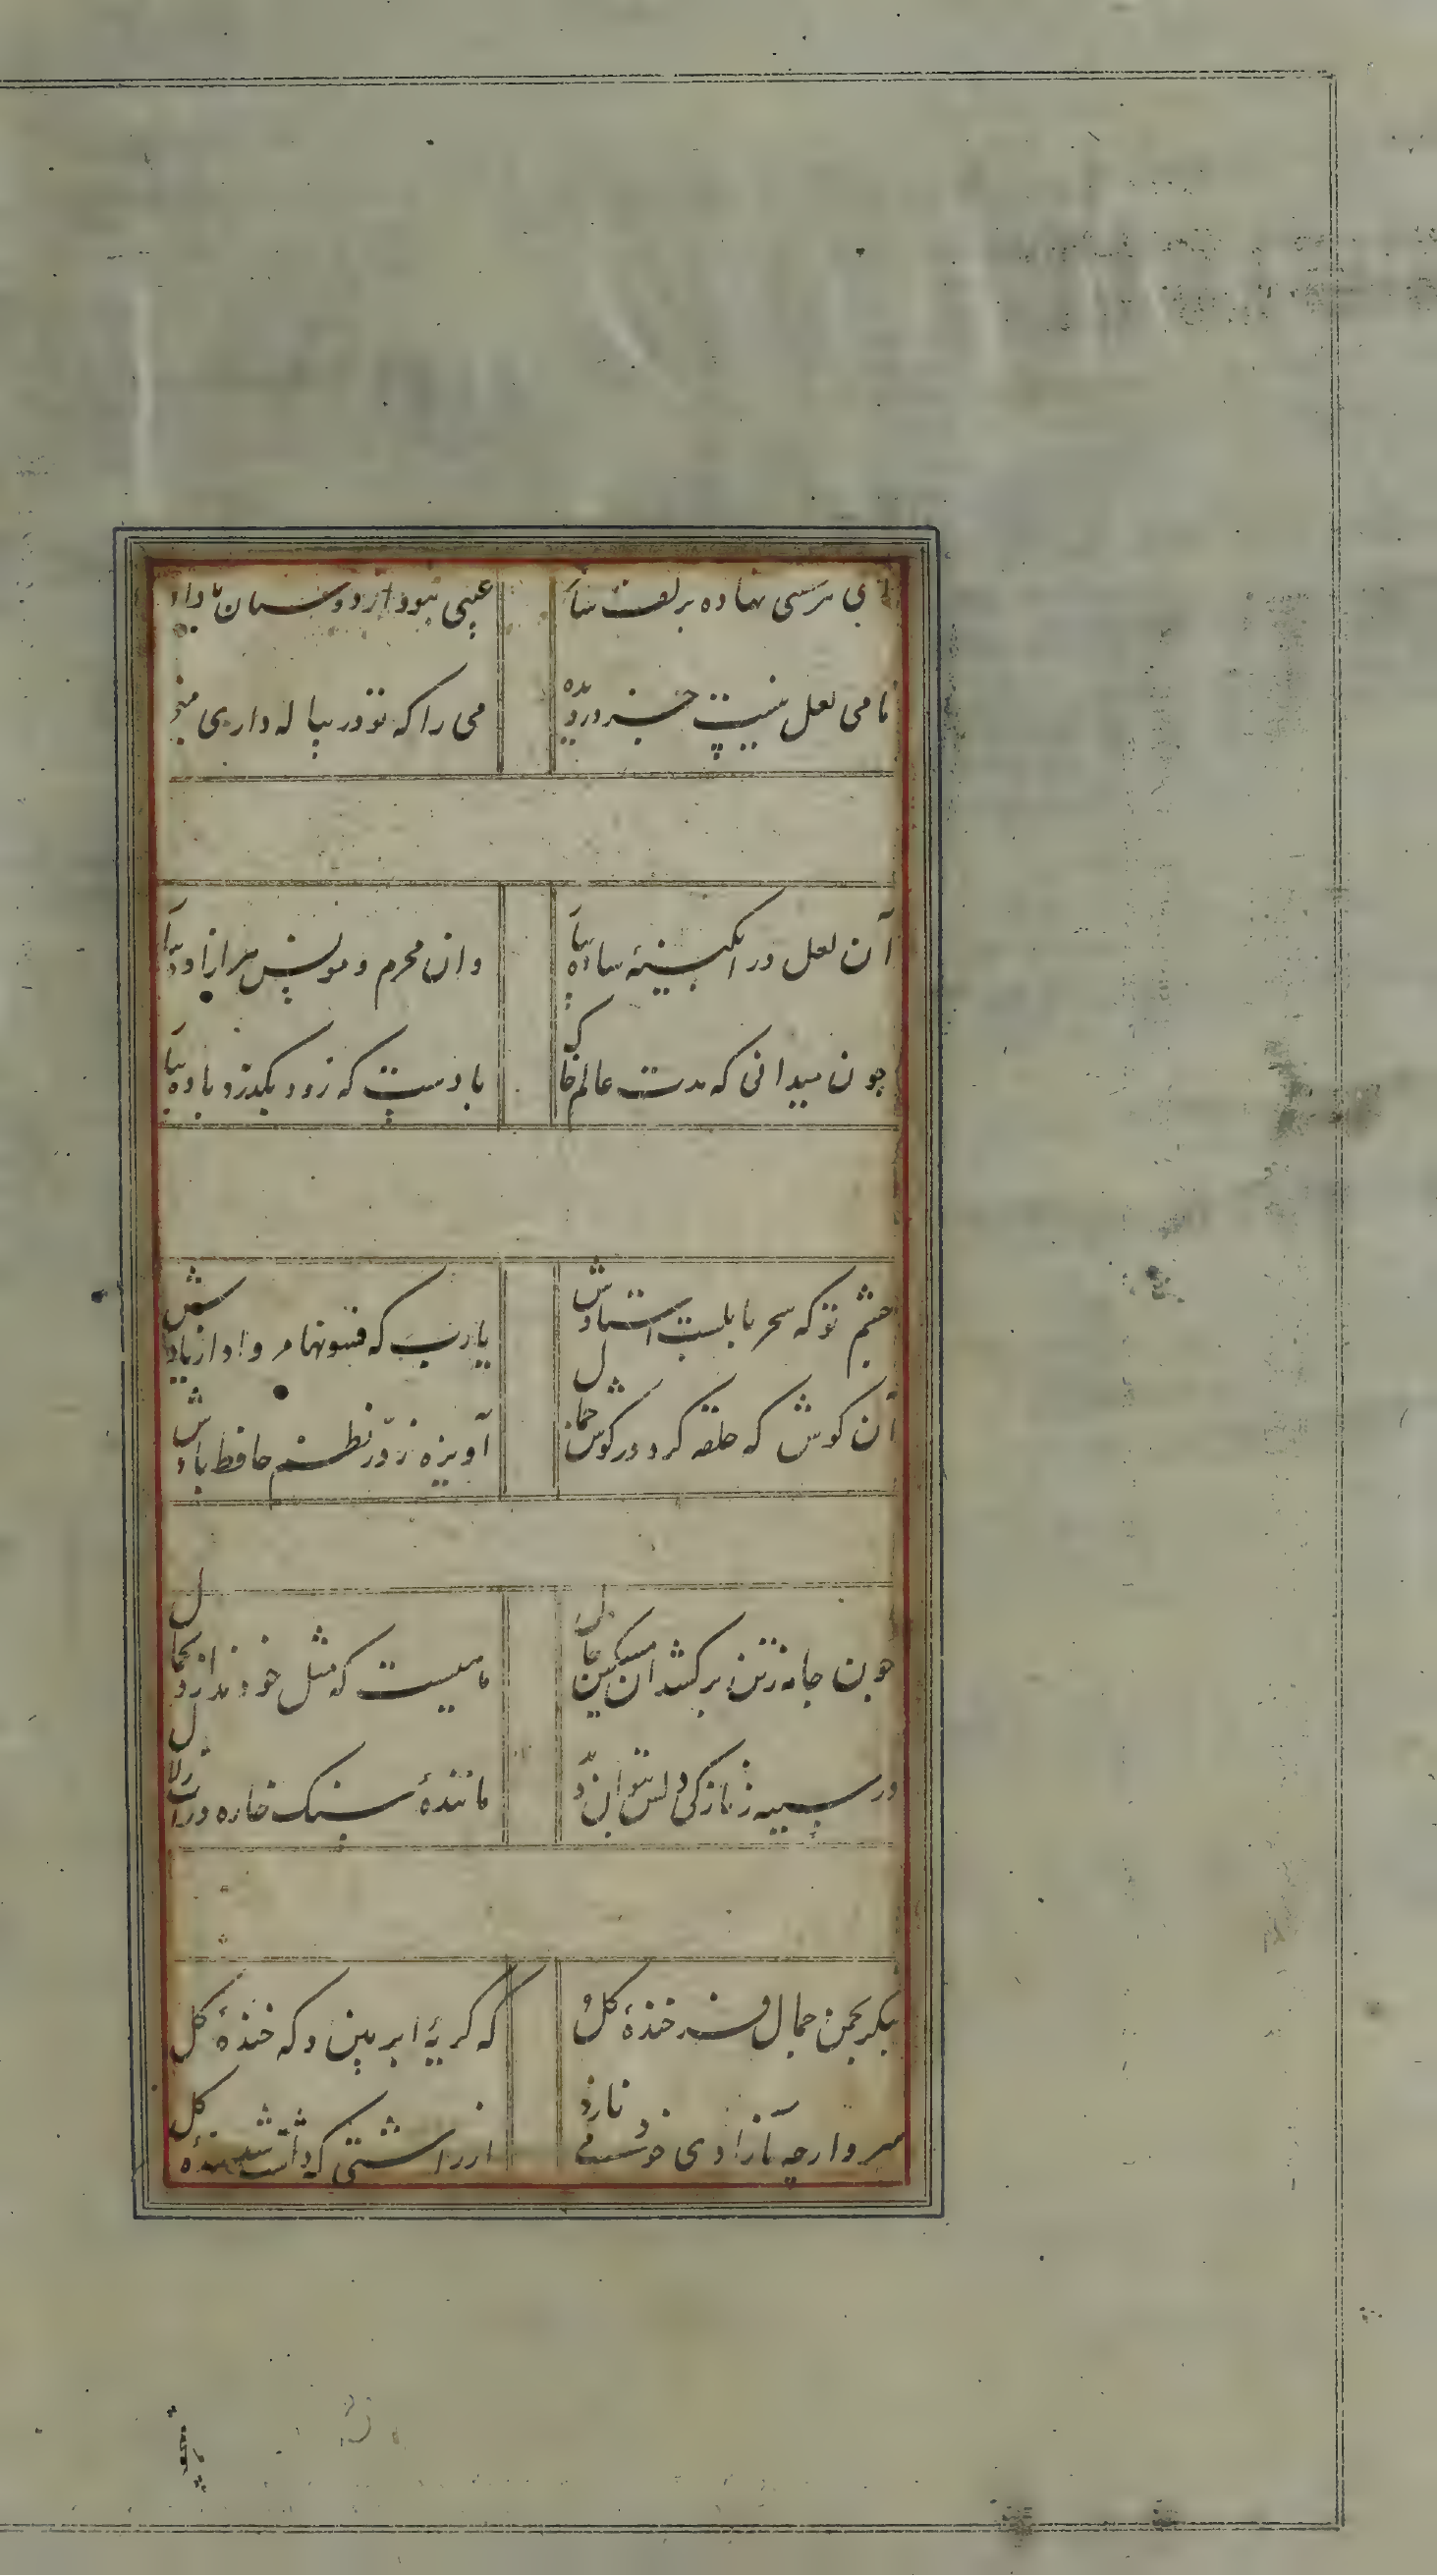 ای نرگسی نهاده بر لعنت ساد عیبی نبود از دوستان
ما می لعل نیست جز درد بده می را که تو در پیاله داری منجر
آن لعل در ابکینهٔ ساده بیار وان محرم و مونس هر ازاده بیار
چون میدانی که مدت عالم خاک بادست که زود بکذرد باده بیار
چشم تو که سحر بابلست استادش یا رب که فسونها مرواد از یادش
آن کوش که حلقه کرد در کوش جمال آویزه ز در نظم حافظ بادش
چون جامه ز تن برکشد ان مسکین خال ماهیست که مثل خود ندارد بجمال
در سینه ز نازکی دلش بتوان دید مانندهٔ سنک خاره در آب زلال
بنکر بچمن جمال فرخندهٔ کل که کریهٔ ابر بین و که خندهٔ کل
سرو ارچه بآزادی خود می نازد از راستی که داشت شد بندهٔ کل